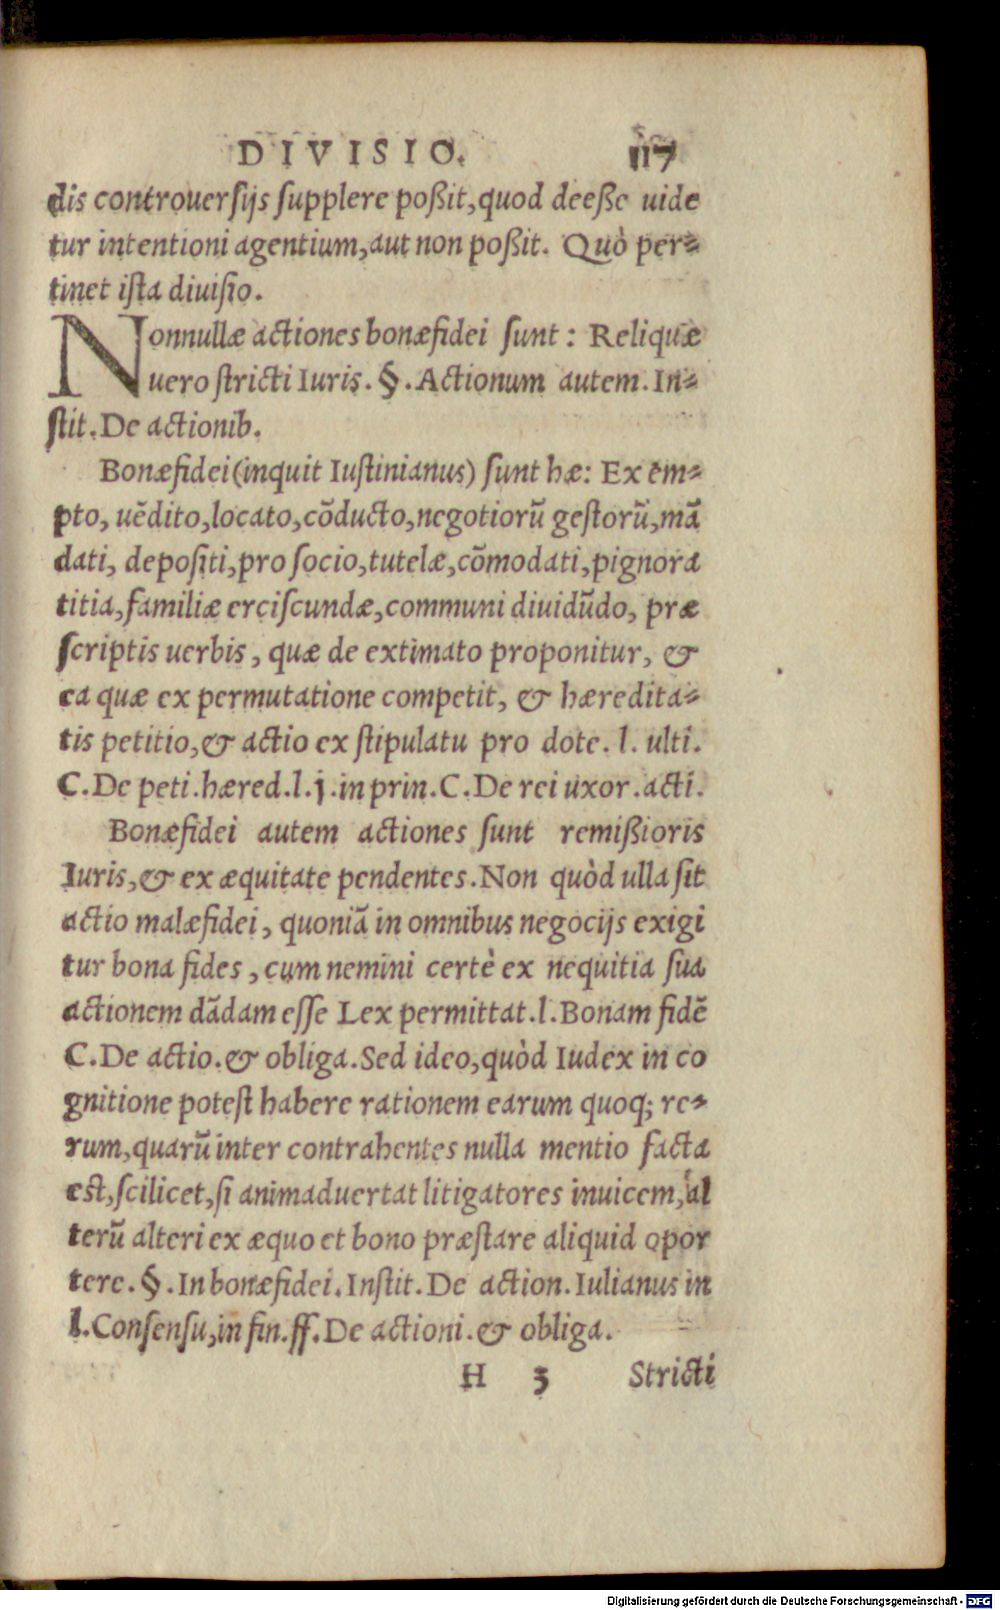 DIVISIO. 117
dis controuersijs supplere poßit, quod deeße uide
tur intentioni agentium, aut non poßit. Quò per-
tinet ista diuisio.
Nonnullæ actiones bonæfidei sunt: Reliquæ
uero stricti Iuris. §. Actionum autem. In-
stit. De actionib.
Bonæfidei (inquit Iustinianus) sunt hæ: Ex em-
pto, uẽdito, locato, cõducto, negotiorũ gestorũ, mã
dati, depositi, pro socio, tutelæ, cõmodati, pignora
titia, familiæ erciscundæ, communi diuidũdo, præ
scriptis uerbis, quæ de extimato proponitur, &
ea quæ ex permutatione competit, & hæredita-
tis petitio, & actio ex stipulatu pro dote. l. ulti.
C. De peti. hæred. l. j. in prin. C. De rei uxor. acti.
Bonæfidei autem actiones sunt remißioris
Iuris, & ex æquitate pendentes. Non quòd ulla sit
actio malæfidei, quoniã in omnibus negocijs exigi
tur bona fides, cum nemini certè ex nequitia sua
actionem dãdam esse Lex permittat. l. Bonam fidẽ
C. De actio. & obliga. Sed ideo, quòd Iudex in co
gnitione potest habere rationem earum quoq; re-
rum, quarũ inter contrahentes nulla mentio facta
est, scilicet, si animaduertat litigatores inuicem, al
terũ alteri ex æquo et bono præstare aliquid opor
tere. §. In bonæfidei. Instit. De action. Iulianus in
l. Consensu, in fin. ff. De actioni. & obliga.
H 3 Stricti
Digitalisierung gefördert durch die Deutsche Forschungsgemeinschaft - DFG